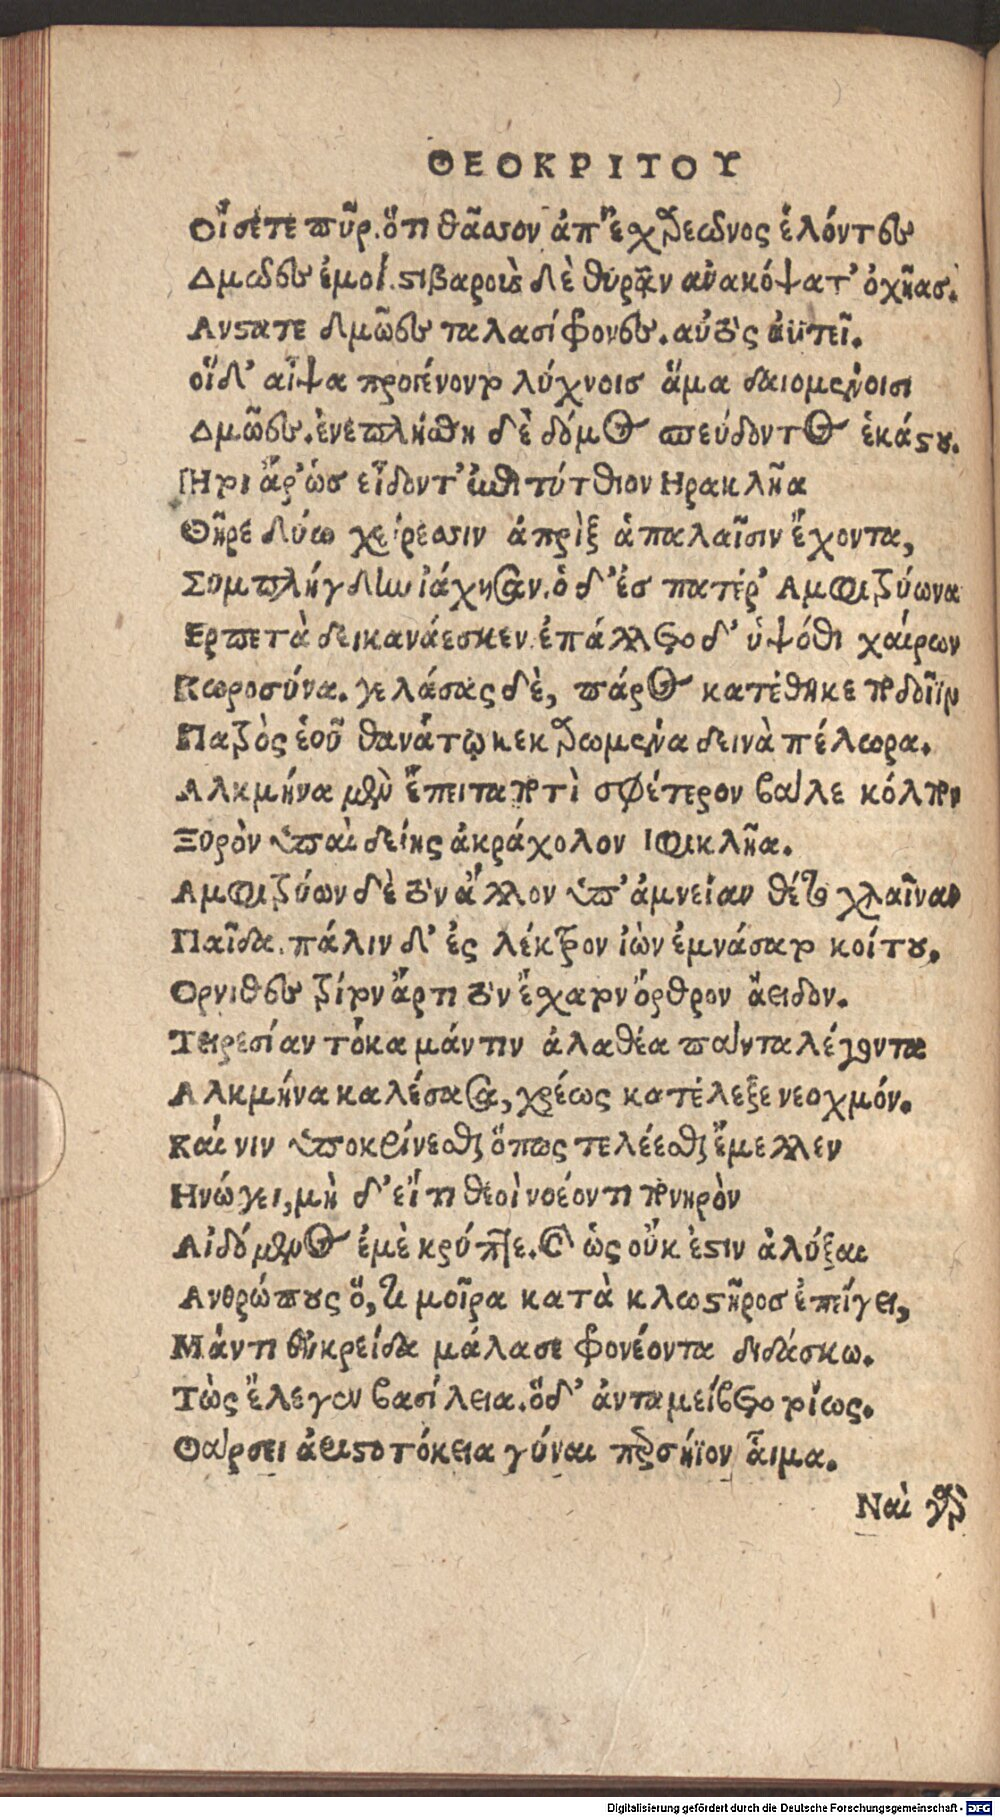 ΘΕΟΚΡΙΤΟΥ
Οἴσετε πῦρ.ὅτι θᾶσσον ἀπ' ἐχαρεῶνος ἑλόντες
Δμῶες ἐμοί.στιβαροὺς δὲ θυρᾶν ἀνακόψατ' ὀχῆας.
Ανστατε δμῶες ταλασίφρονες.αὐτὸς ἀϋτεῖ.
οἵδ' αἶψα προγένοντο λύχνοισ ἅμα δαιομένοισι
Δμῶες.ἐνεπλήσθη δὲ δόμος σπεύδοντος ἑκάστου.
Ητοι ἄρ' ὡσ εἶδοντ' ἐπιτύτθιον Ηρακλῆα
Θῆρε δύω χείρεσσιν ἀπρὶξ ἁπαλαῖσιν ἔχοντα,
Συμπλήγδην ἰάχησαν.ὁ δ' ἐσ πατέρ' Αμφιτρύωνα
Ερπετὰ δεικανάεσκεν.ἐπάλλετο δ' ὑψόθι χαίρων
Κωροσύνα.γελάσας δὲ, πάρος κατέθηκε ποδοῖϊν
Πατρὸς ἑοῦ θανάτῳ κεκαρωμένα δεινὰ πέλωρα.
Αλκμήνα μὲν ἔπειτα ποτὶ σφέτερον βάλε κόλπον
Ξηρὸν ὑπαὶ δείης ἀκράχολον Ιφικλῆα.
Αμφιτρύων δὲ τὸν ἄλλον ὑπ' ἀμνείαν θέτο χλαῖναν
Παῖδα.πάλιν δ' ἐς λέκτρον ἰὼν ἐμνάσατο κοίτου.
Ορνιθες τρίτον ἄρτι τὸν ἔχατον ὄρθρον ἄειδον.
Τειρεσίαν τόκα μάντιν ἀλαθέα πάντα λέγοντα
Αλκμήνα καλέσασα, χρέως κατέλεξε νεοχμόν.
Καί νιν ὑποκρίνεσθαι ὅπως τελέεσθαι ἔμελλεν
Ηνώγει, μὴ δ' εἴ τι θεοὶ νοέοντι πονηρὸν
Αἰδόμενος ἐμὲ κρύπτε.καὶ ὡς οὔκ ἐστιν ἀλύξαι
Ανθρώπους ὅ,τι μοῖρα κατὰ κλωστῆροσ ἐπείγει,
Μάντι Εὐηρείδα μάλασε φρονέοντα διδάσκω.
Τὼς ἔλεγεν βασίλεια.ὅδ' ἀνταμείβετο τοίως.
Θάρσει ἀριστοτόκεια γύναι περσήϊον αἷμα.
Ναὶ γὰρ
Digitalisierung gefördert durch die Deutsche Forschungsgemeinschaft - DFG